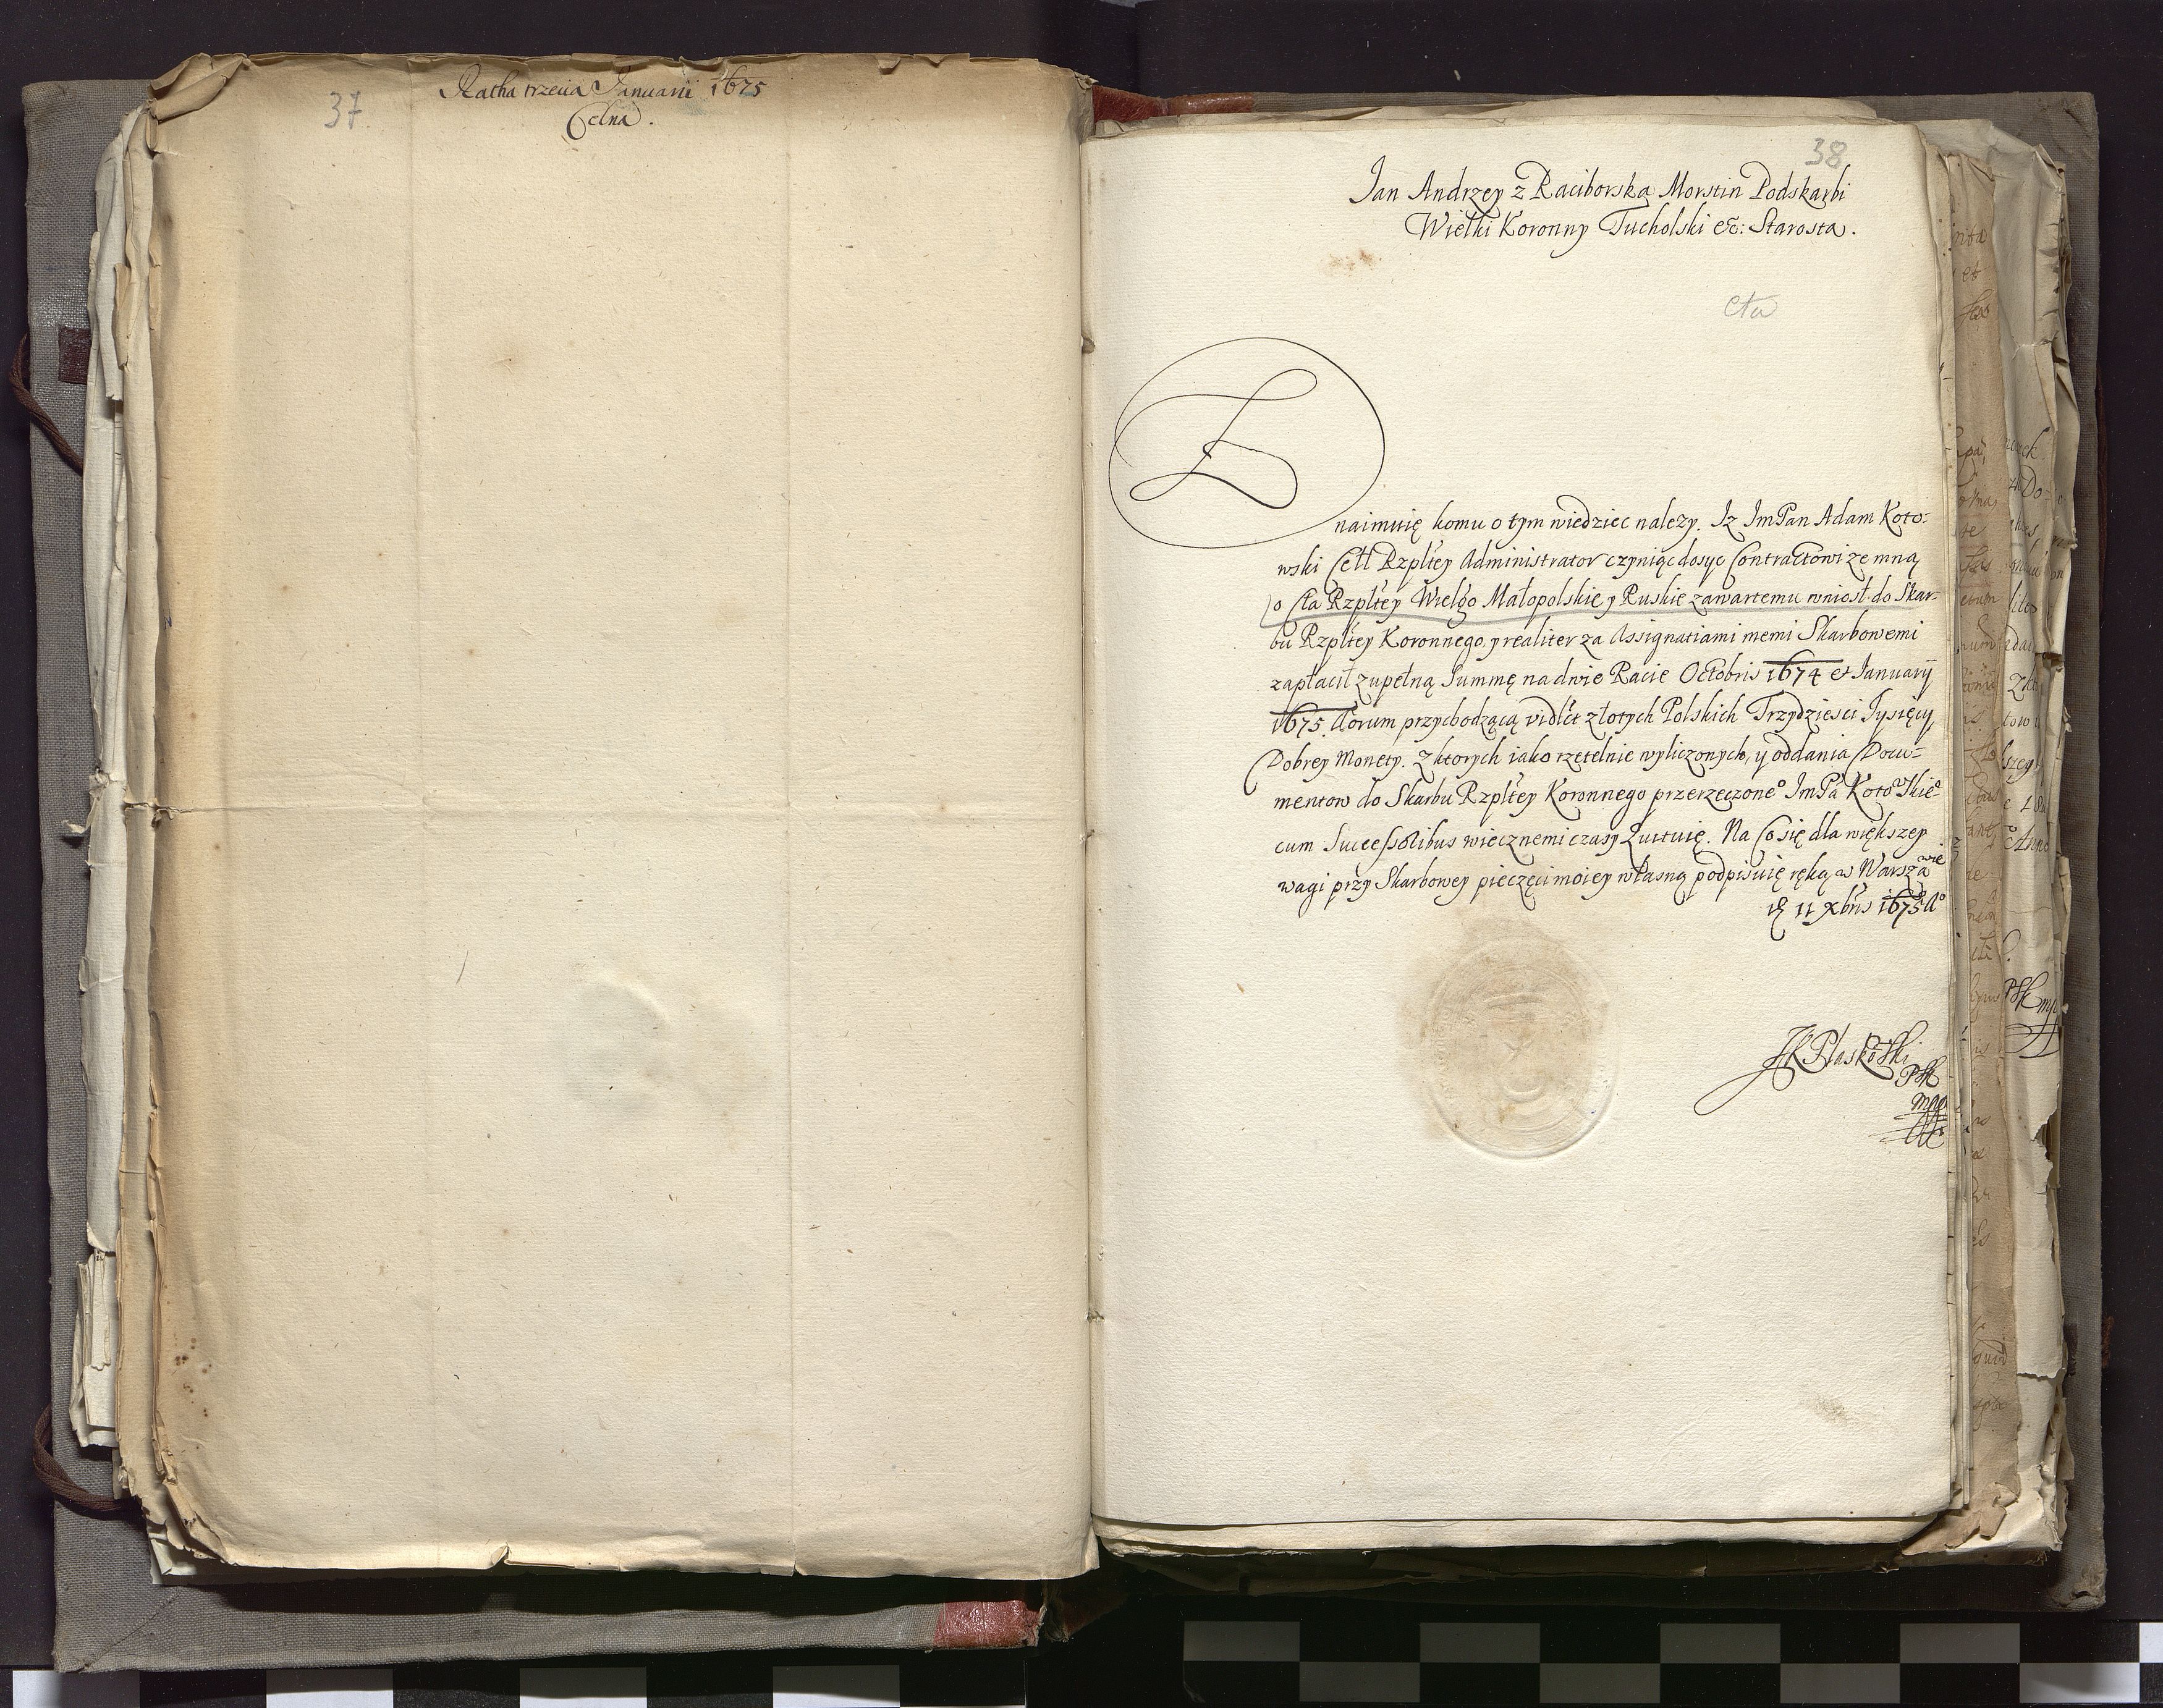 37
Ratha trzecia Januarii 1675
Celna.
38
Jan Andrzey z Raciborska Morstin Podskarbi
Wielki Koronny Tucholski &c: Starosta.
cła
Znaimuię komu o tym wiedziec nalezy. Iz ImPan Adam Koto-
wski Cełł Rzpltey Administrator czyniąc dosyc Contractowi ze mną
o Cła Rzpltey Wielgo Małopolskie y Ruskie zawartemu wniosł do Skar-
bu Rzpltey Koronnego, y realiter za Assignatiami memi Skarbowemi
zapłacił zupełną Summę na dwie Racie Octobris 1674 et Januarij
1675 Aorum przychodzącą vidlct złotych Polskich Trzydziesci Tysięcy
Dobrey Monety. z ktorych iako rzetelnie wyliczonych, y oddania Docu-
mentow do Skarbu Rzpltey Koronnego przerzeczone° ImPa Kotowskie°
cum Successoribus wiecznemi czasy Quituię. Na Co się dla większey
wagi przy Skarbowey pieczęci moiey własną podpisuię ręką w Warszawie
11 Xbris 1675 A°
Plaskowski
PSK
mpp